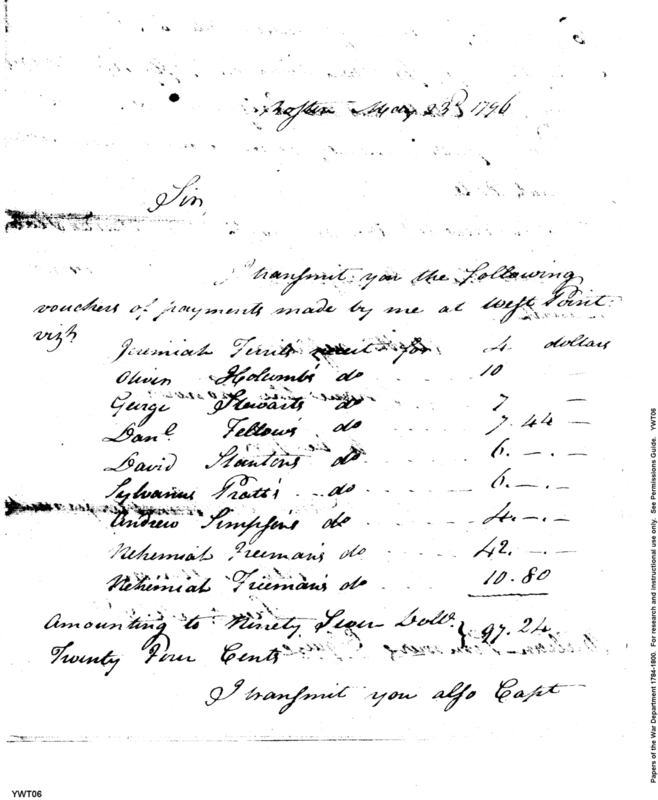 Boston May 23d 1796
Sir,
I transmit you the following
vouchers of payments made by me at West Point
vizt
Jeremiah Terrils receit for 4 dollars
Oliver Holcombs do 10 —
George Stewarts do 7 —
Danl. Fellows do 7.44 —
David Stantons do 6. — . —
Sylvanus Pratts do 6. — . —
Andrew Simpsons do 4. — . —
Nehemiah Freemans do 42. — . —
Nehemiah Freemans do 10.80
Amounting to Ninety Seven Dolls. } 97.24
Twenty Four Cents
I transmit you also Capt
YWT06
Papers of the War Department 1784-1800. For research and instructional use only. See Permissions Guide. YWT06